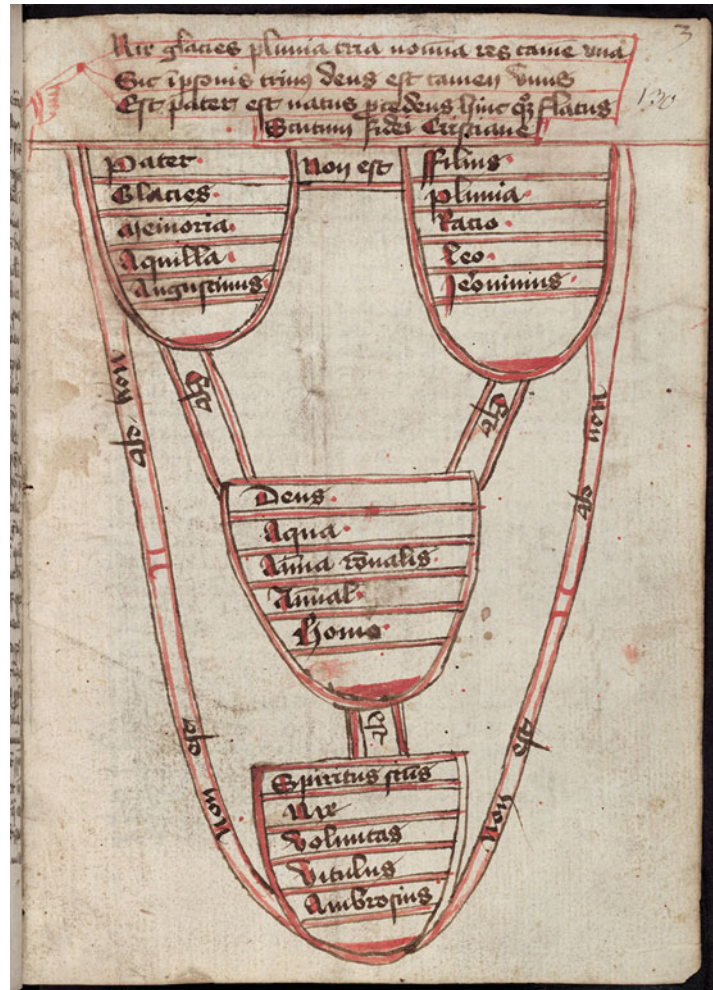 Nix glacies pluvia tria nomina res tame una
Sic i psonis trinus deus est tamen unus
Est pater est natus pcedens hinc qz flatus
Scutum fidei Cristiane
3
130
Pater
Glacies
Memoria
Aquilla
Augustinus
Non est
ffilius
pluvia
Racio
Leo
Jeronimus
est
est
non
est
Non
est
Deus
Aqua
Aima ronalis
Aimal
homo
est
est
non
est
Non
Spiritus scus
Nix
Voluntas
Vitulus
Ambrosius